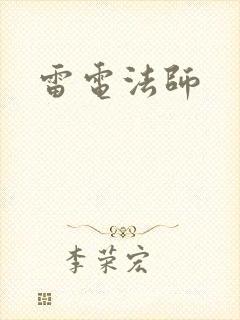 雷電法師
李荣宏